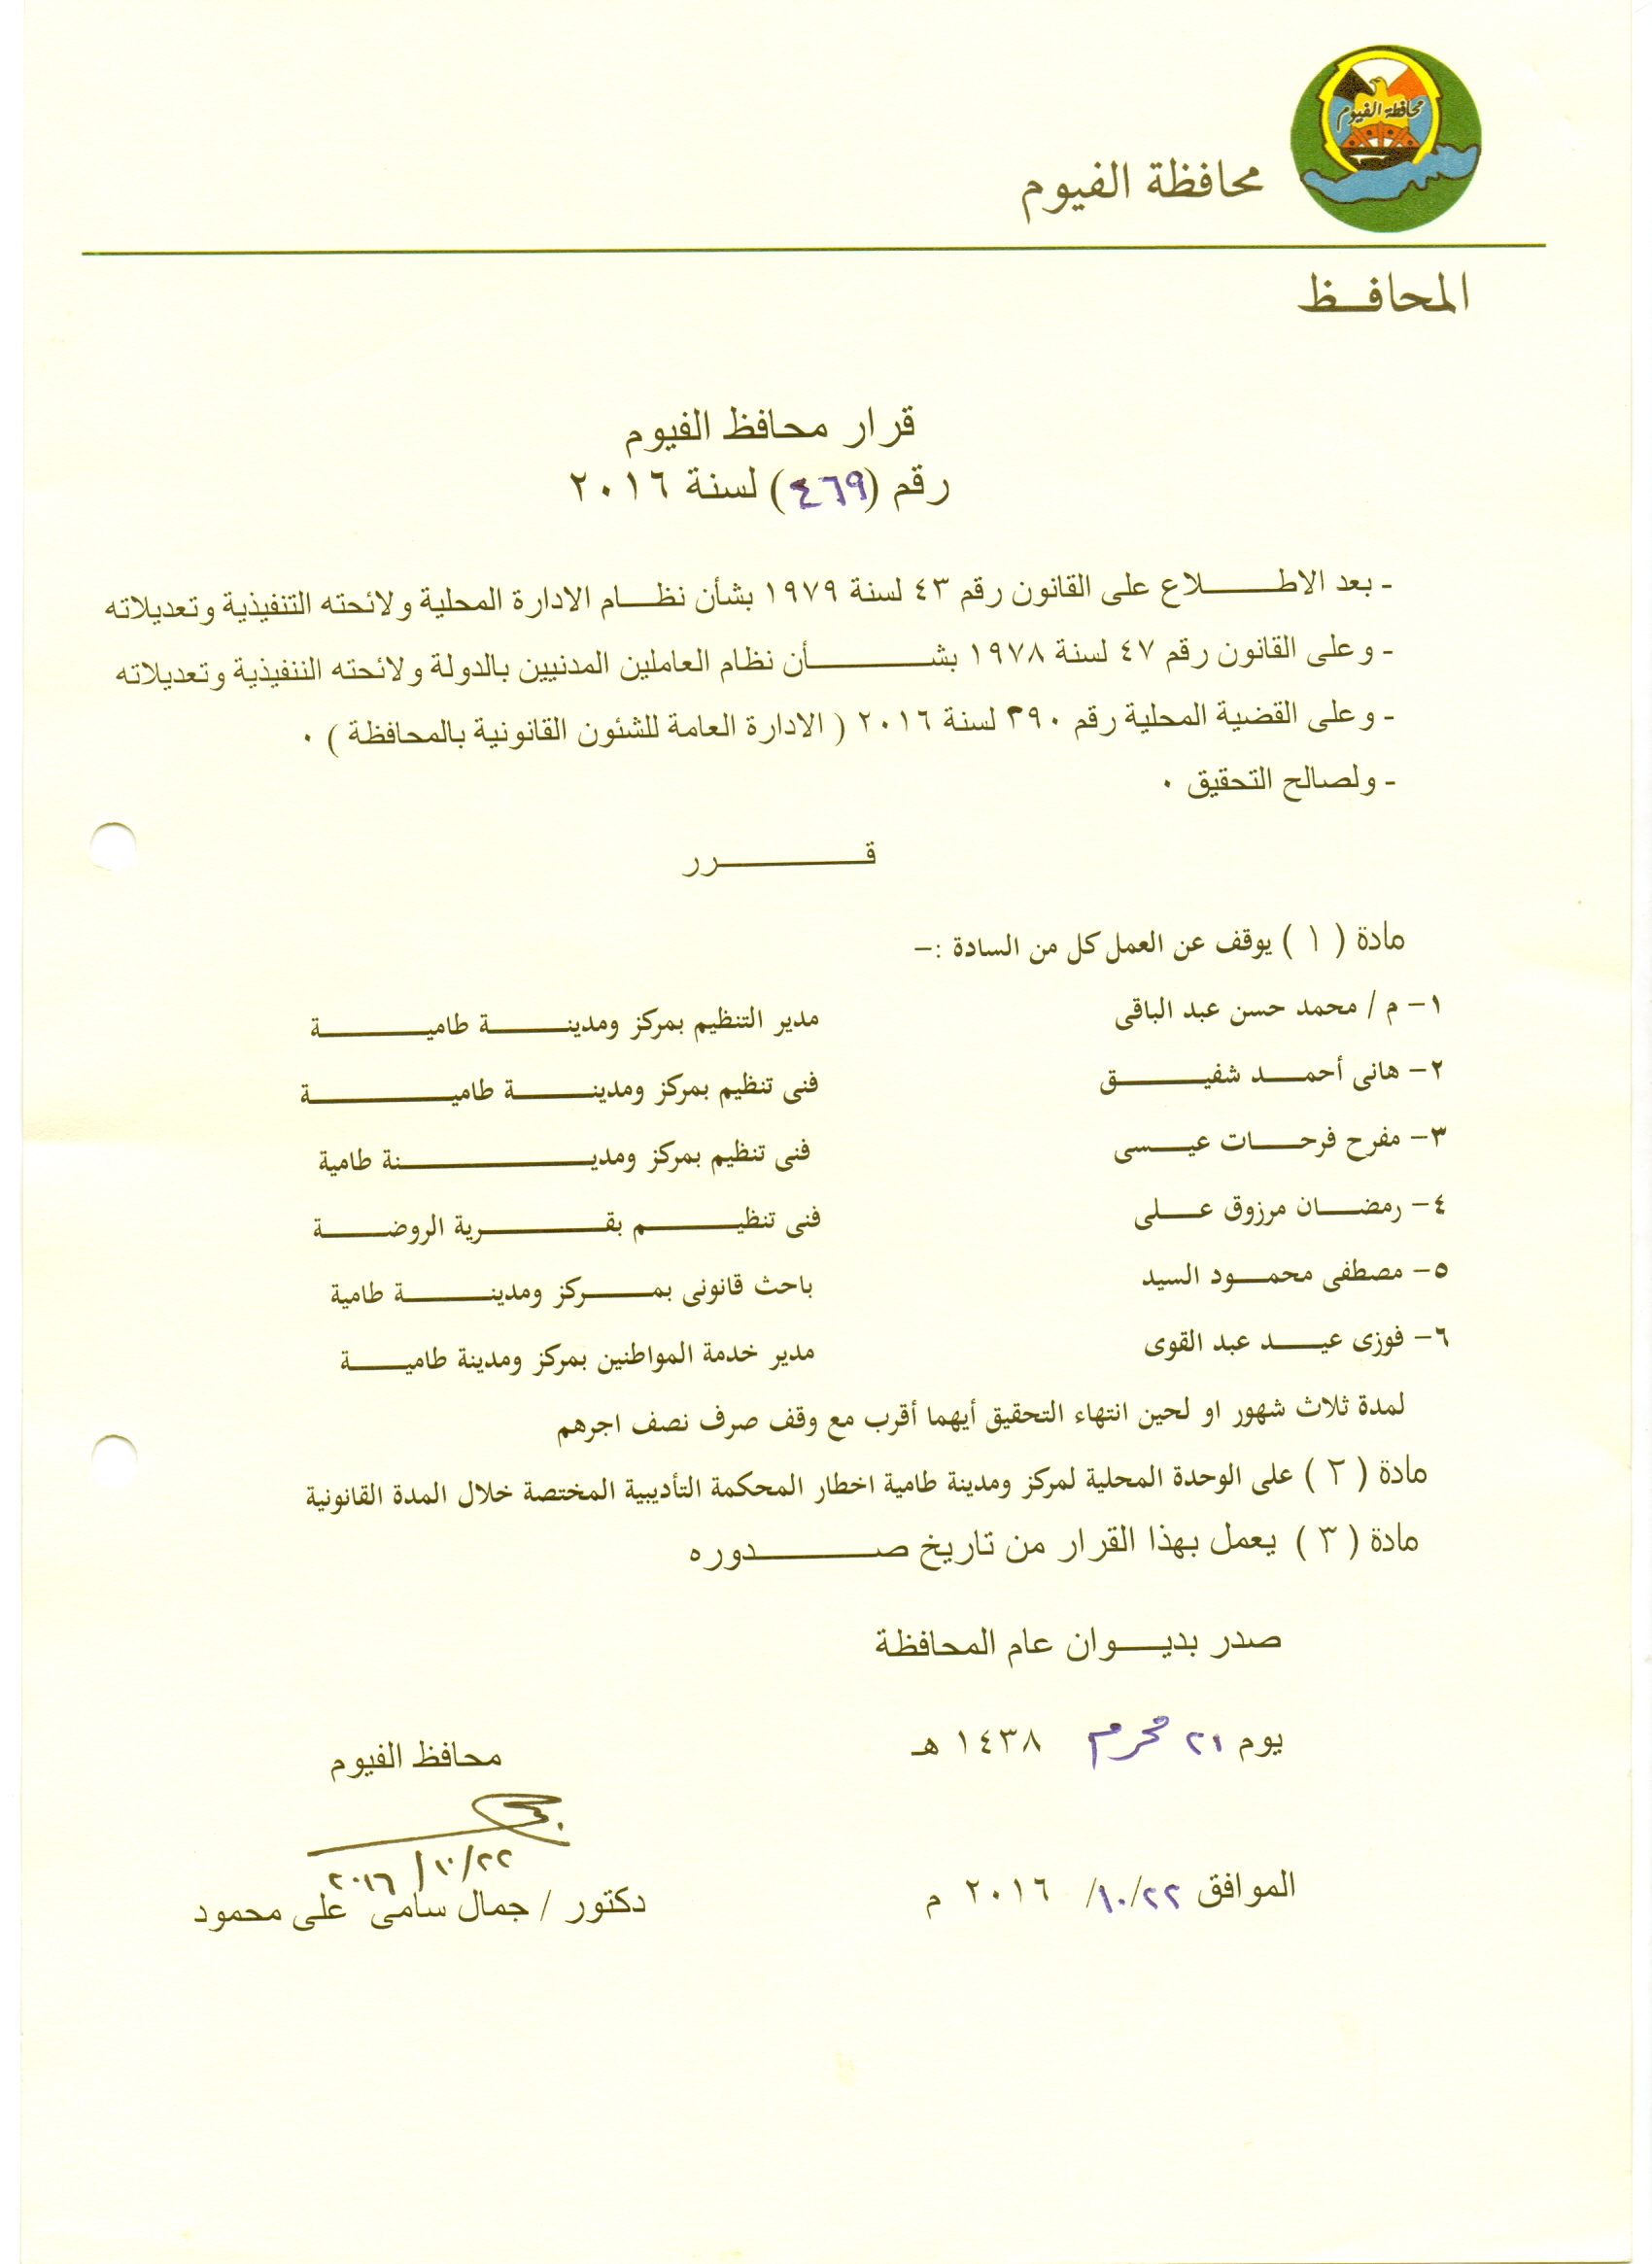 محافظة الفيوم
محافظة الفيوم
المحافظ
قرار محافظ الفيوم
رقم (٤٦٩) لسنة ٢٠١٦
- بعد الاطلاع على القانون رقم ٤٣ لسنة ١٩٧٩ بشأن نظام الادارة المحلية ولائحته التنفيذية وتعديلاته
- وعلى القانون رقم ٤٧ لسنة ١٩٧٨ بشأن نظام العاملين المدنيين بالدولة ولائحته التنفيذية وتعديلاته
- وعلى القضية المحلية رقم ٣٩٠ لسنة ٢٠١٦ ( الادارة العامة للشئون القانونية بالمحافظة ) ٠
- ولصالح التحقيق ٠
قرر
مادة ( ١ ) يوقف عن العمل كل من السادة :-
١- م / محمد حسن عبد الباقى مدير التنظيم بمركز ومدينة طامية
٢- هانى أحمد شفيق فنى تنظيم بمركز ومدينة طامية
٣- مفرح فرحات عيسى فنى تنظيم بمركز ومدينة طامية
٤- رمضان مرزوق على فنى تنظيم بقرية الروضة
٥- مصطفى محمود السيد باحث قانونى بمركز ومدينة طامية
٦- فوزى عيد عبد القوى مدير خدمة المواطنين بمركز ومدينة طامية
لمدة ثلاث شهور او لحين انتهاء التحقيق أيهما أقرب مع وقف صرف نصف اجرهم
مادة ( ٢ ) على الوحدة المحلية لمركز ومدينة طامية اخطار المحكمة التأديبية المختصة خلال المدة القانونية
مادة ( ٣ ) يعمل بهذا القرار من تاريخ صدوره
صدر بديوان عام المحافظة
يوم ٢١ محرم ١٤٣٨ هـ
محافظ الفيوم
٢٢/١٠/٢٠١٦
الموافق ٢٢/١٠/ ٢٠١٦ م
دكتور / جمال سامى على محمود